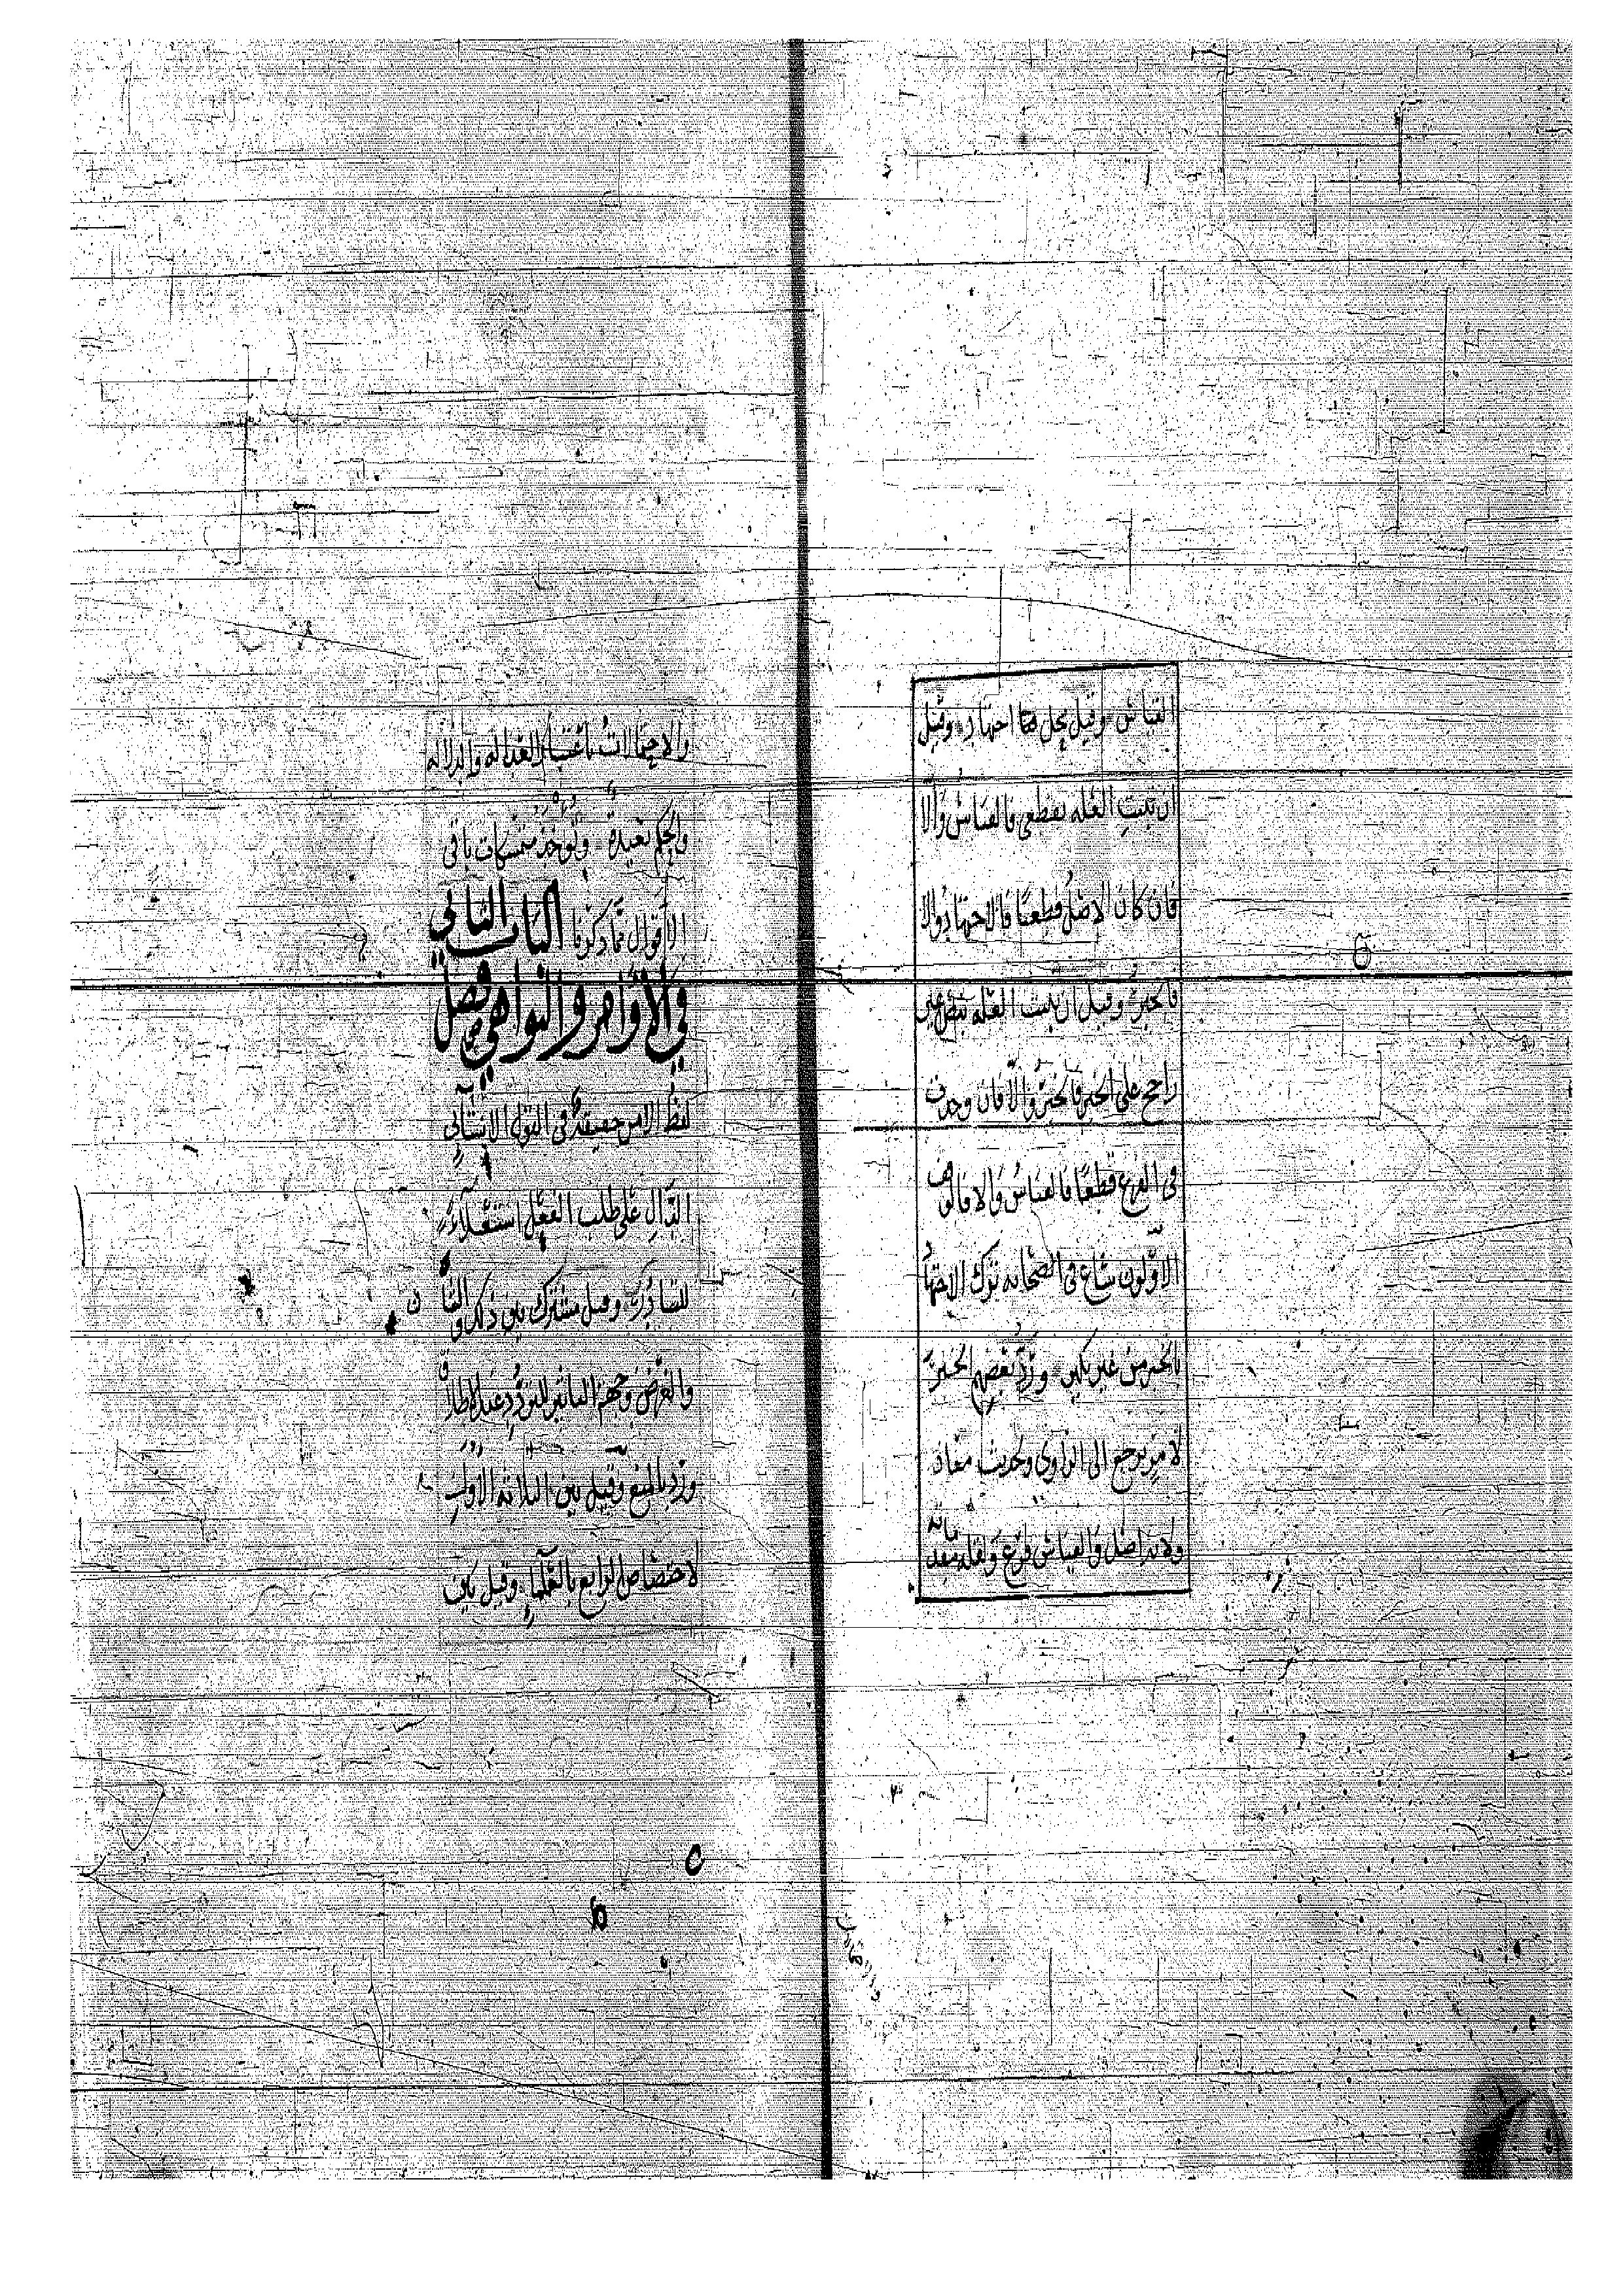 القياس وقيل محل اجتهاد وقيل
ان ثبتت العله بقطعى فالقياس والا
فان كان الاصل قطعيا فالاجتهاد والا
فالخبر وقيل ان ثبتت العله بنص
راجح على الخبر فالخبر والا فان وجدت
فى الفرع قطعا فالقياس والا فالوقف
الاولون شاع فى الصحابه ترك الاجتهاد
بالخبر من غير نكير ورد بعضهم الخبر
لامر يرجع الى الراوي وبحديث معاذ
ولانه اصل والقياس فرع
والاحتمالات باعتبار العداله والدلاله
والحكم بعيدة ويؤخذ متمسكات باقى
الاقوال مما ذكرنا الباب الثاني
في الاوامر والنواهي فصل
لفظ الامر حقيقة فى القول الانشائي
الدال على طلب الفعل استعلاء
للتبادر وقيل مشترك بين ذلك
والغرض وجهة التاثير للتردد عند الاطلاق
ورد بالمنع وقيل بين الثلاثه الاول
لاختصاص الرابع بالعلماء وقيل بين